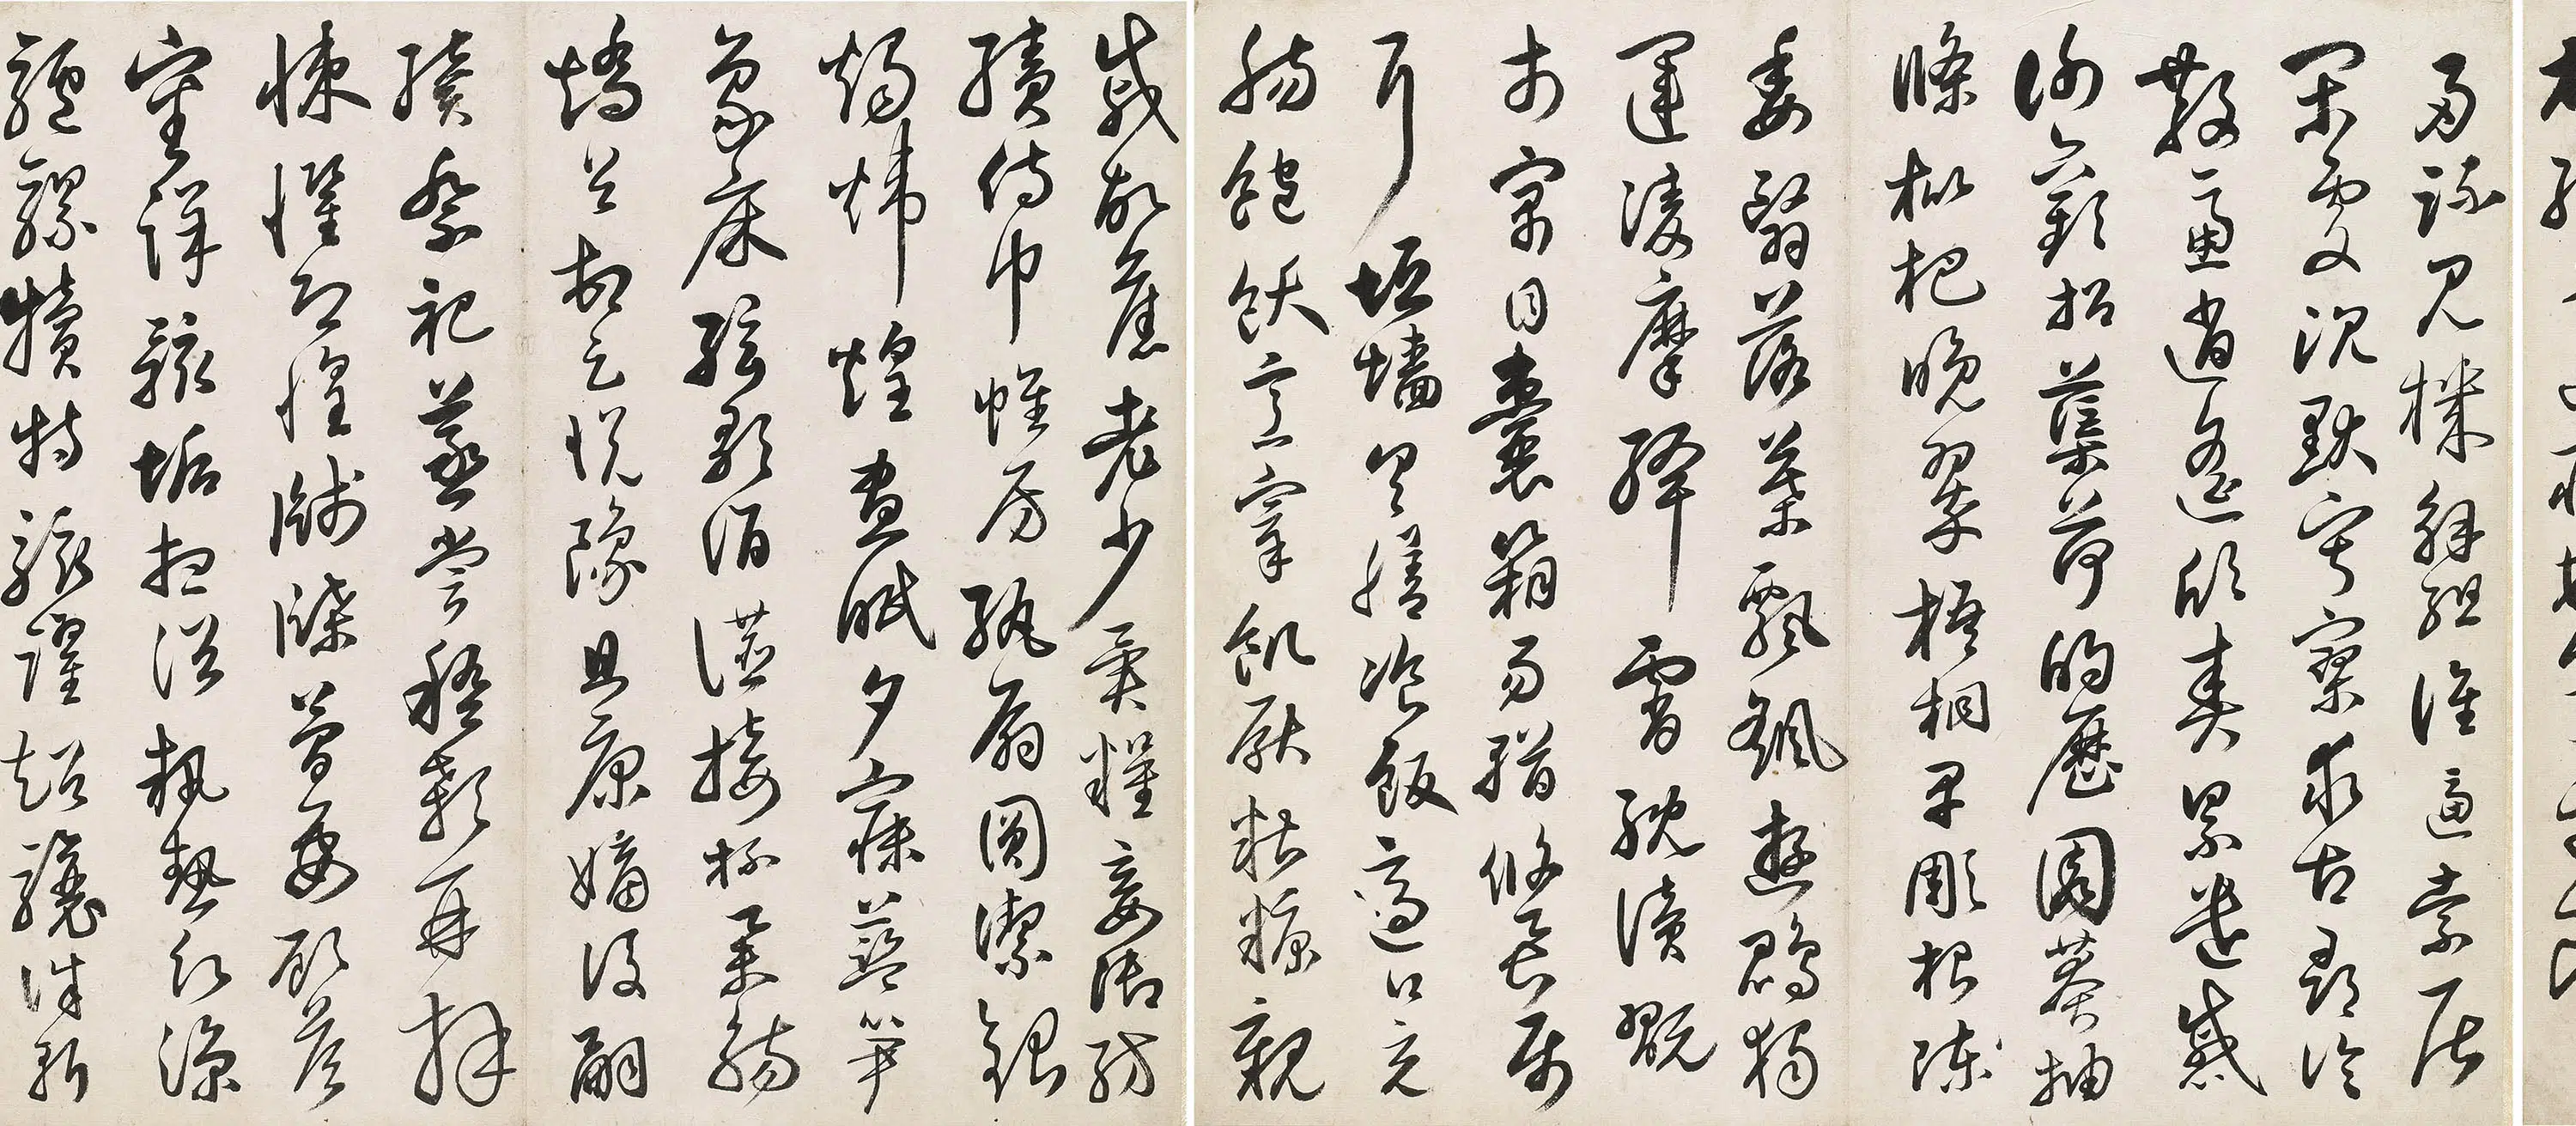 两疏見機解組誰逼索居
閑處沉默寂寥求古尋論
散慮逍遙欣奏累遣慼
謝歡招渠荷的歷園莽抽
條枇杷晚翠梧桐早彫根陳
委翳落葉飄颻遊鵾獨
運凌摩絳霄耽讀翫
市寓目囊箱易輶攸畏屬
耳垣墻具膳飡飯適口充
腸飽飫烹宰飢厭糟糠親
戚故舊老少異糧妾御紡
績侍巾帷房紈扇圓潔銀
燭煒煌晝眠夕寐藍笋
象床絃歌酒讌接杯舉觴
矯手頓足悅豫且康嫡後嗣
續祭祀蒸嘗稽顙再拜
悚懼恐惶牋牒簡要顧答
審詳骸垢想浴執熱願涼
驢騾犢特駭躍超驤誅斬